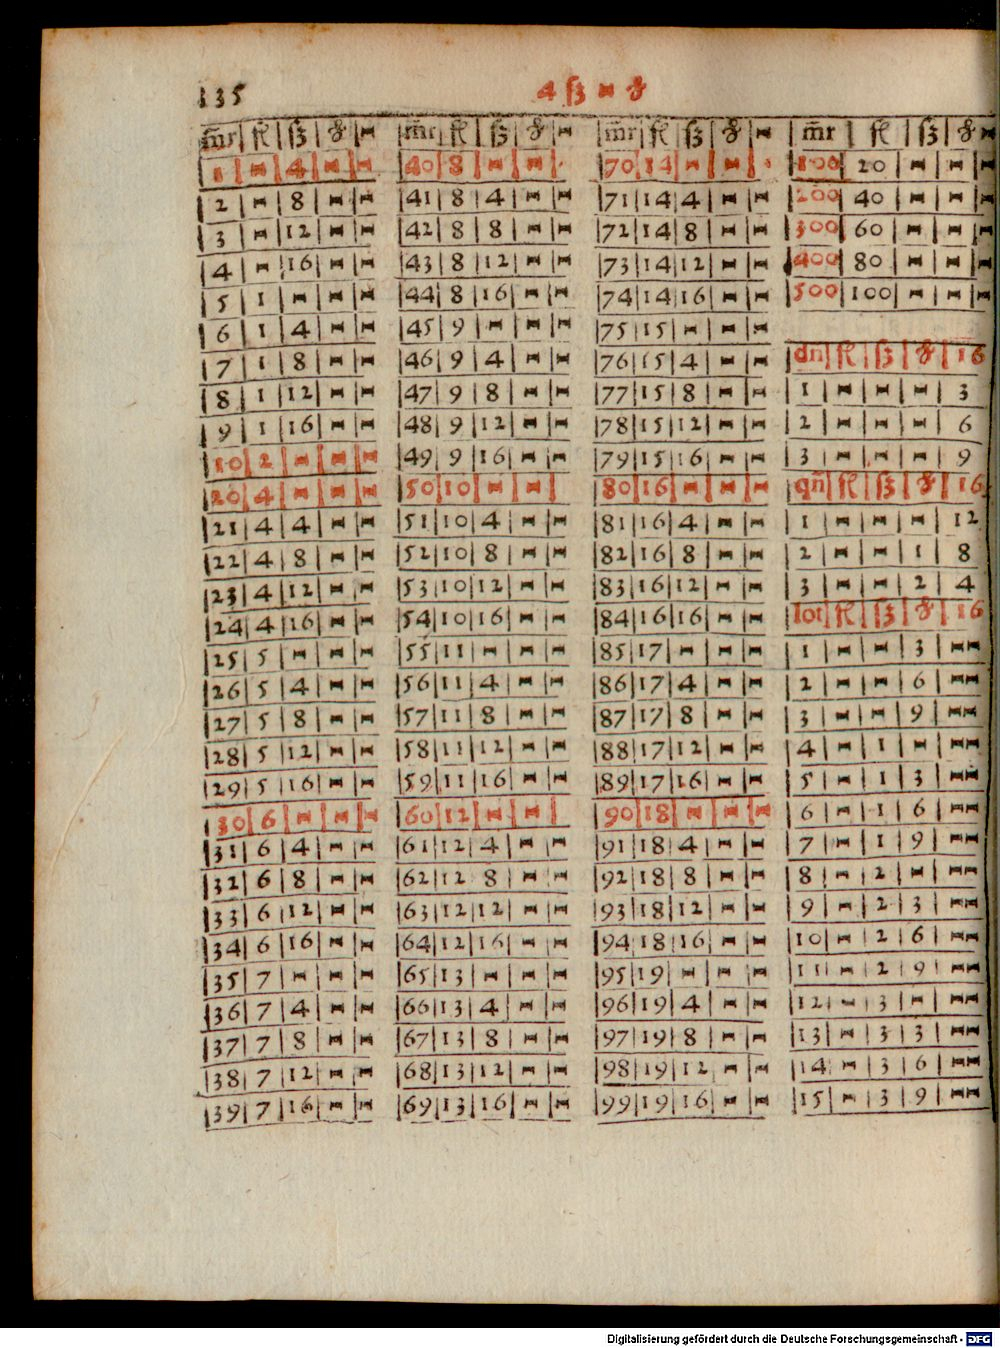 135
4 ſʒ ⌑ ₰
m̃r | fl | ſʒ | ₰ | ⌑
1 | ⌑ | 4 | ⌑ | ⌑
2 | ⌑ | 8 | ⌑ | ⌑
3 | ⌑ | 12 | ⌑ | ⌑
4 | ⌑ | 16 | ⌑ | ⌑
5 | 1 | ⌑ | ⌑ | ⌑
6 | 1 | 4 | ⌑ | ⌑
7 | 1 | 8 | ⌑ | ⌑
8 | 1 | 12 | ⌑ | ⌑
9 | 1 | 16 | ⌑ | ⌑
10 | 2 | ⌑ | ⌑ | ⌑
20 | 4 | ⌑ | ⌑ | ⌑
21 | 4 | 4 | ⌑ | ⌑
22 | 4 | 8 | ⌑ | ⌑
23 | 4 | 12 | ⌑ | ⌑
24 | 4 | 16 | ⌑ | ⌑
25 | 5 | ⌑ | ⌑ | ⌑
26 | 5 | 4 | ⌑ | ⌑
27 | 5 | 8 | ⌑ | ⌑
28 | 5 | 12 | ⌑ | ⌑
29 | 5 | 16 | ⌑ | ⌑
30 | 6 | ⌑ | ⌑ | ⌑
31 | 6 | 4 | ⌑ | ⌑
32 | 6 | 8 | ⌑ | ⌑
33 | 6 | 12 | ⌑ | ⌑
34 | 6 | 16 | ⌑ | ⌑
35 | 7 | ⌑ | ⌑ | ⌑
36 | 7 | 4 | ⌑ | ⌑
37 | 7 | 8 | ⌑ | ⌑
38 | 7 | 12 | ⌑ | ⌑
39 | 7 | 16 | ⌑ | ⌑
m̃r | fl | ſʒ | ₰ | ⌑
40 | 8 | ⌑ | ⌑
41 | 8 | 4 | ⌑ | ⌑
42 | 8 | 8 | ⌑ | ⌑
43 | 8 | 12 | ⌑ | ⌑
44 | 8 | 16 | ⌑ | ⌑
45 | 9 | ⌑ | ⌑ | ⌑
46 | 9 | 4 | ⌑ | ⌑
47 | 9 | 8 | ⌑ | ⌑
48 | 9 | 12 | ⌑ | ⌑
49 | 9 | 16 | ⌑ | ⌑
50 | 10 | ⌑ | ⌑
51 | 10 | 4 | ⌑ | ⌑
52 | 10 | 8 | ⌑ | ⌑
53 | 10 | 12 | ⌑ | ⌑
54 | 10 | 16 | ⌑ | ⌑
55 | 11 | ⌑ | ⌑ | ⌑
56 | 11 | 4 | ⌑ | ⌑
57 | 11 | 8 | ⌑ | ⌑
58 | 11 | 12 | ⌑ | ⌑
59 | 11 | 16 | ⌑ | ⌑
60 | 12 | ⌑ | ⌑
61 | 12 | 4 | ⌑ | ⌑
62 | 12 | 8 | ⌑ | ⌑
63 | 12 | 12 | ⌑ | ⌑
64 | 12 | 16 | ⌑ | ⌑
65 | 13 | ⌑ | ⌑ | ⌑
66 | 13 | 4 | ⌑ | ⌑
67 | 13 | 8 | ⌑ | ⌑
68 | 13 | 12 | ⌑ | ⌑
69 | 13 | 16 | ⌑ | ⌑
m̃r | fl | ſʒ | ₰ | ⌑
70 | 14 | ⌑ | ⌑
71 | 14 | 4 | ⌑ | ⌑
72 | 14 | 8 | ⌑ | ⌑
73 | 14 | 12 | ⌑ | ⌑
74 | 14 | 16 | ⌑ | ⌑
75 | 15 | ⌑ | ⌑ | ⌑
76 | 15 | 4 | ⌑ | ⌑
77 | 15 | 8 | ⌑ | ⌑
78 | 15 | 12 | ⌑ | ⌑
79 | 15 | 16 | ⌑ | ⌑
80 | 16 | ⌑ | ⌑ | ⌑
81 | 16 | 4 | ⌑ | ⌑
82 | 16 | 8 | ⌑ | ⌑
83 | 16 | 12 | ⌑ | ⌑
84 | 16 | 16 | ⌑ | ⌑
85 | 17 | ⌑ | ⌑ | ⌑
86 | 17 | 4 | ⌑ | ⌑
87 | 17 | 8 | ⌑ | ⌑
88 | 17 | 12 | ⌑ | ⌑
89 | 17 | 16 | ⌑ | ⌑
90 | 18 | ⌑ | ⌑ | ⌑
91 | 18 | 4 | ⌑ | ⌑
92 | 18 | 8 | ⌑ | ⌑
93 | 18 | 12 | ⌑ | ⌑
94 | 18 | 16 | ⌑ | ⌑
95 | 19 | ⌑ | ⌑ | ⌑
96 | 19 | 4 | ⌑ | ⌑
97 | 19 | 8 | ⌑ | ⌑
98 | 19 | 12 | ⌑ | ⌑
99 | 19 | 16 | ⌑ | ⌑
m̃r | fl | ſʒ | ₰ | ⌑
100 | 20 | ⌑ | ⌑ | ⌑
200 | 40 | ⌑ | ⌑ | ⌑
300 | 60 | ⌑ | ⌑ | ⌑
400 | 80 | ⌑ | ⌑ | ⌑
500 | 100 | ⌑ | ⌑ | ⌑
dn | fl | ſʒ | ₰ | 16
1 | ⌑ | ⌑ | ⌑ | 3
2 | ⌑ | ⌑ | ⌑ | 6
3 | ⌑ | ⌑ | ⌑ | 9
qñ | fl | ſʒ | ₰ | 16
1 | ⌑ | ⌑ | ⌑ | 12
2 | ⌑ | ⌑ | 1 | 8
3 | ⌑ | ⌑ | 2 | 4
lot | fl | ſʒ | ₰ | 16
1 | ⌑ | ⌑ | 3 | ⌑⌑
2 | ⌑ | ⌑ | 6 | ⌑⌑
3 | ⌑ | ⌑ | 9 | ⌑⌑
4 | ⌑ | 1 | ⌑ | ⌑⌑
5 | ⌑ | 1 | 3 | ⌑⌑
6 | ⌑ | 1 | 6 | ⌑⌑
7 | ⌑ | 1 | 9 | ⌑⌑
8 | ⌑ | 2 | ⌑ | ⌑⌑
9 | ⌑ | 2 | 3 | ⌑⌑
10 | ⌑ | 2 | 6 | ⌑⌑
11 | ⌑ | 2 | 9 | ⌑⌑
12 | ⌑ | 3 | ⌑ | ⌑⌑
13 | ⌑ | 3 | 3 | ⌑⌑
14 | ⌑ | 3 | 6 | ⌑⌑
15 | ⌑ | 3 | 9 | ⌑⌑
Digitalisierung gefördert durch die Deutsche Forschungsgemeinschaft - DFG